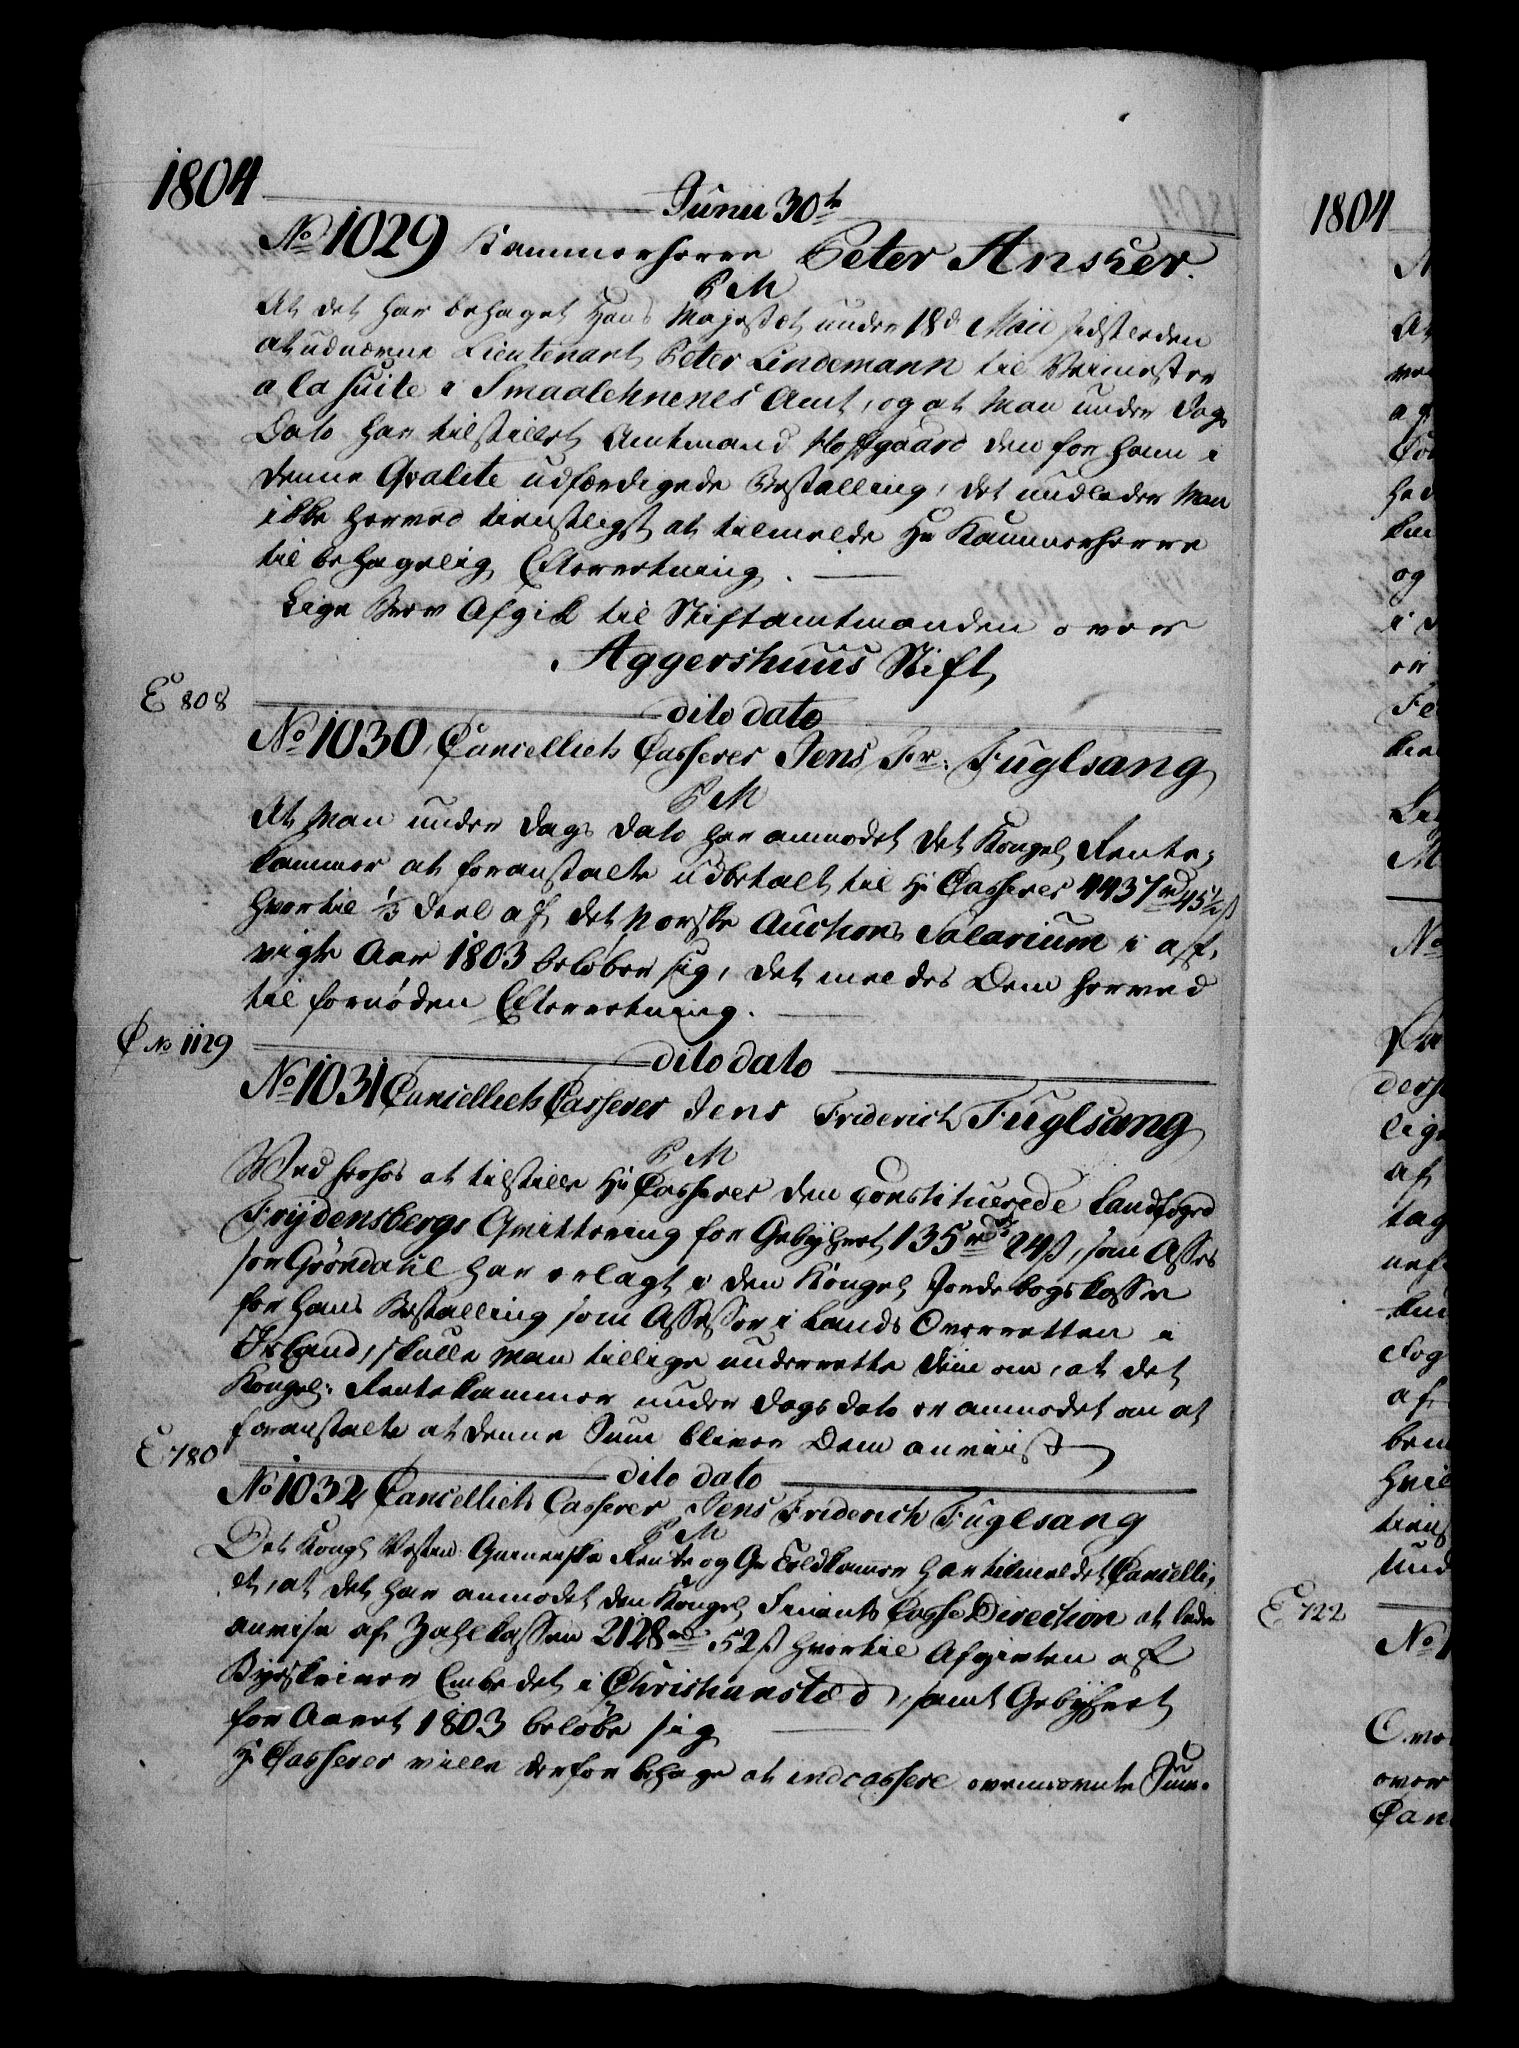 1804
Junii 30te
No 1029 Kammerherre Peter Ansker.
P M
At det har behaget Hans Majestæt under 18d Maii sidstleden
at udnævne Lieutenant Peter Lindemann til Veimester
a la suite i Smaalehnenes Amt, og at Man under Dags
Dato har tilstillet Amtmand Hofgaard den for ham i
denne Qvalite udfærdigede Bestalling, det undlader Man
ikke herved tienstligst at tilmelde Hr Kammerherre
til behagelig Efterretning.
Lige Brev Afgik til Stiftamtmanden over
Aggershuus Stift
E 808
dito dato
No 1030 Cancelliets Casserer Jens Fr: Fuglsang
P M
At Man under Dags Dato har anmodet det Kongel Rente-
kammer at foranstalte udbetalt til Hr Casserer 4437 rd 45½ s
hvortil ⅓ deel af det Norske Auctions Salarium i af-
vigte Aar 1803 beløber sig, det meldes Dem herved
til fornøden Efterretning.
C No 1129
dito dato
No 1031 Cancelliets Casserer Jens Friderich Fuglsang
P M
Ved hoshos at tilstille Hr Casserer den constituerede Landfoged
Frydensbergs Qvittering for Gebyhret 135 rd 24 s, som Asses
sor Gröndahl har erlagt i den Kongel Jordebogskasse
for hans Bestalling som Assessor i Lands Overretten i
Island, skulle Man tillige underrette Dem om, at det
Kongel: Rentekammer under Dags Dato er anmodet om at
foranstalte at denne Sum bliver Dem anviist
E 780
dito dato
No 1032 Cancelliets Casserer Jens Friderich Fuglsang
P M
Det Kongl Vestind: Guineiske Rente og Gr Toldkammer har tilmeldet Cancelli,
et, at det har anmodet den Kongel Finants Casse Direction at lade
anvise af Zahlkassen 2128 rd 52 s hvortil Afgivten af
Byeskriver Embedet i Christiansted, samt Gebyhret
for Aaret 1803 beløbe sig
Hr Casserer ville derfor behage at indcassere ovennævnte Sum.
1804
E 722